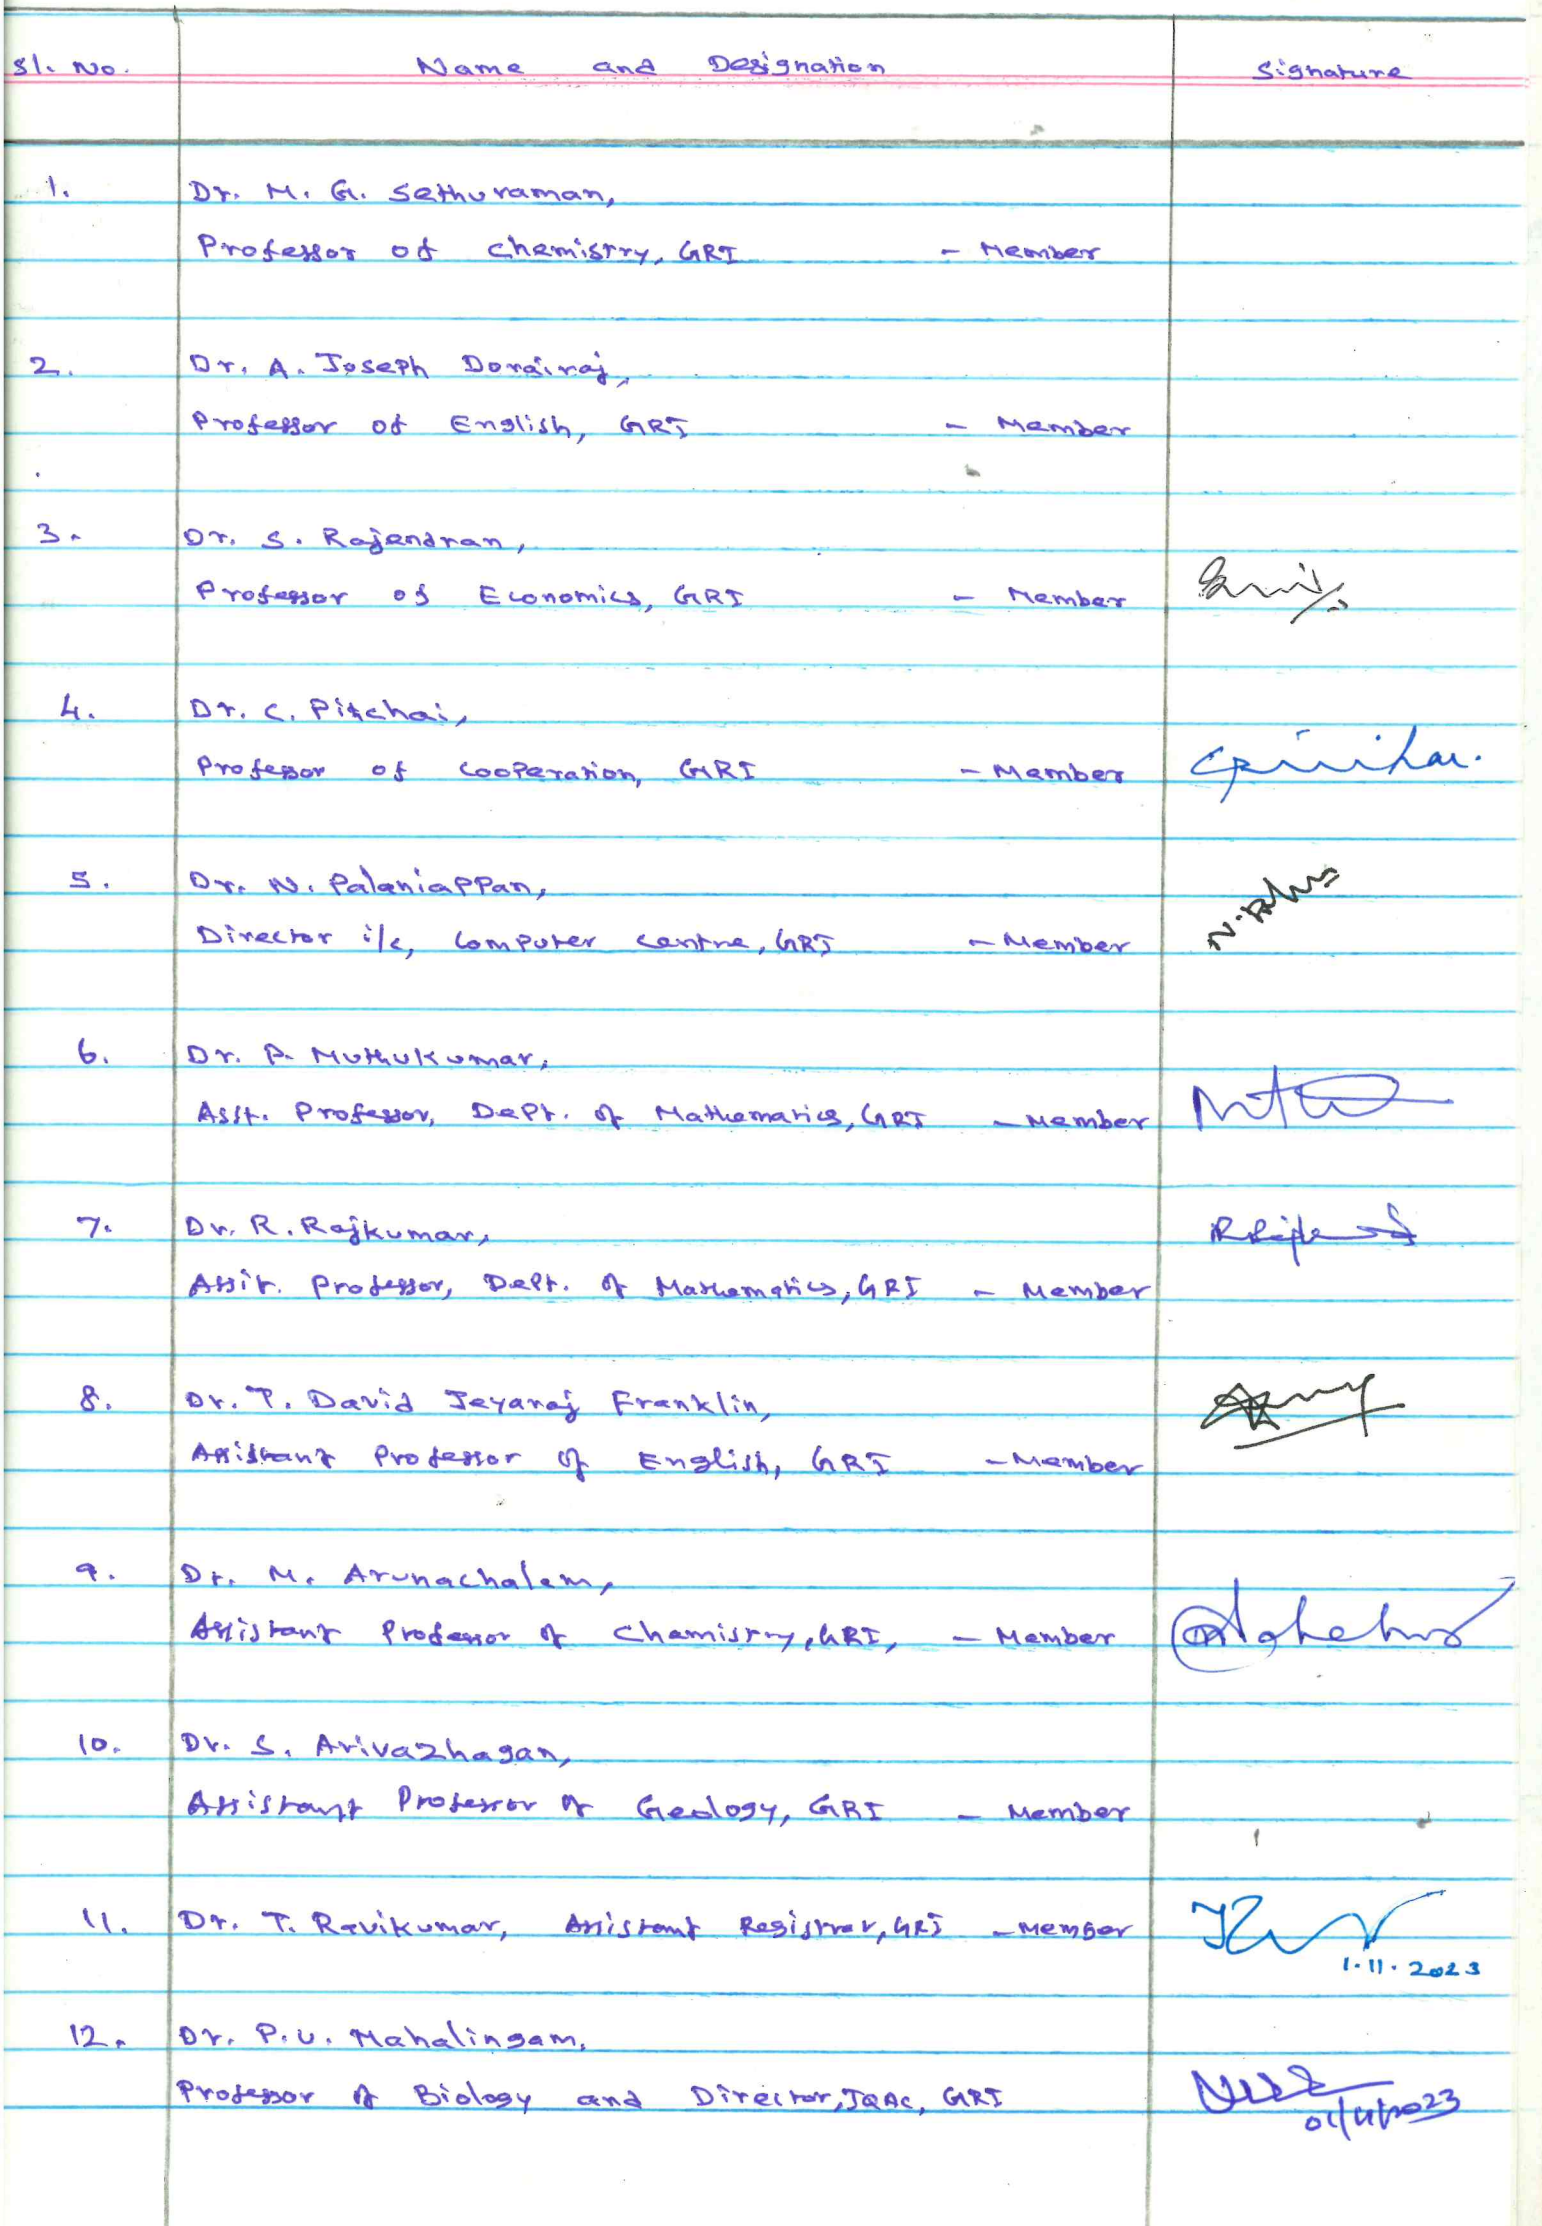 Sl. No. Name and Designation Signature
1. Dr. M. G. Sethuraman,
Professor of Chemistry, GRI - Member
2. Dr. A. Joseph Dorairaj,
Professor of English, GRI - Member
3. Dr. S. Rajendran,
Professor of Economics, GRI - Member
4. Dr. C. Pitchai,
Professor of Cooperation, GRI - Member
5. Dr. N. Palaniappan,
Director i/c, Computer Centre, GRI - Member
6. Dr. P. Muthukumar,
Asst. Professor, Dept. of Mathematics, GRI - Member
7. Dr. R. Rajkumar,
Assit. Professor, Dept. of Mathematics, GRI - Member
8. Dr. T. David Jeyaraj Franklin,
Assistant Professor of English, GRI - Member
9. Dr. M. Arunachalam,
Assistant Professor of Chemistry, GRI, - Member
10. Dr. S. Arivazhagan,
Assistant Professor of Geology, GRI - Member
11. Dr. T. Ravikumar, Assistant Registrar, GRI - Member
1.11.2023
12. Dr. P.U. Mahalingam,
Professor of Biology and Director, IQAC, GRI
01/11/2023